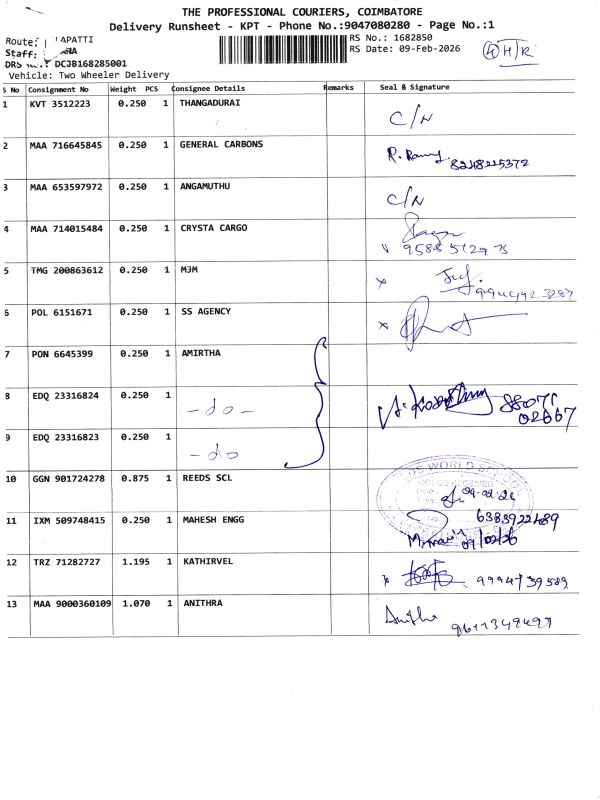 THE PROFESSIONAL COURIERS, COIMBATORE
Delivery Runsheet - KPT - Phone No.:9047080280 - Page No.:1
Route: APATTI
RS No.: 1682850
Staff: ANA
RS Date: 09-Feb-2026
DRS DCJB168285001
Vehicle: Two Wheeler Delivery
S No Consignment No Weight PCS Consignee Details Remarks Seal & Signature
1 KVT 3512223 0.250 1 THANGADURAI C/N
2 MAA 716645845 0.250 1 GENERAL CARBONS
3 MAA 653597972 0.250 1 ANGAMUTHU C/N
4 MAA 714015484 0.250 1 CRYSTA CARGO
5 TMG 200863612 0.250 1 MJM
6 POL 6151671 0.250 1 SS AGENCY
7 PON 6645399 0.250 1 AMIRTHA
8 EDQ 23316824 0.250 1 -do- 88071
02667
9 EDQ 23316823 0.250 1 -do
10 GGN 901724278 0.875 1 REEDS SCL 09-02-26
11 IXM 509748415 0.250 1 MAHESH ENGG 6383922489
09/02/26
12 TRZ 71282727 1.195 1 KATHIRVEL 9994739589
13 MAA 9000360109 1.070 1 ANITHRA Anitha